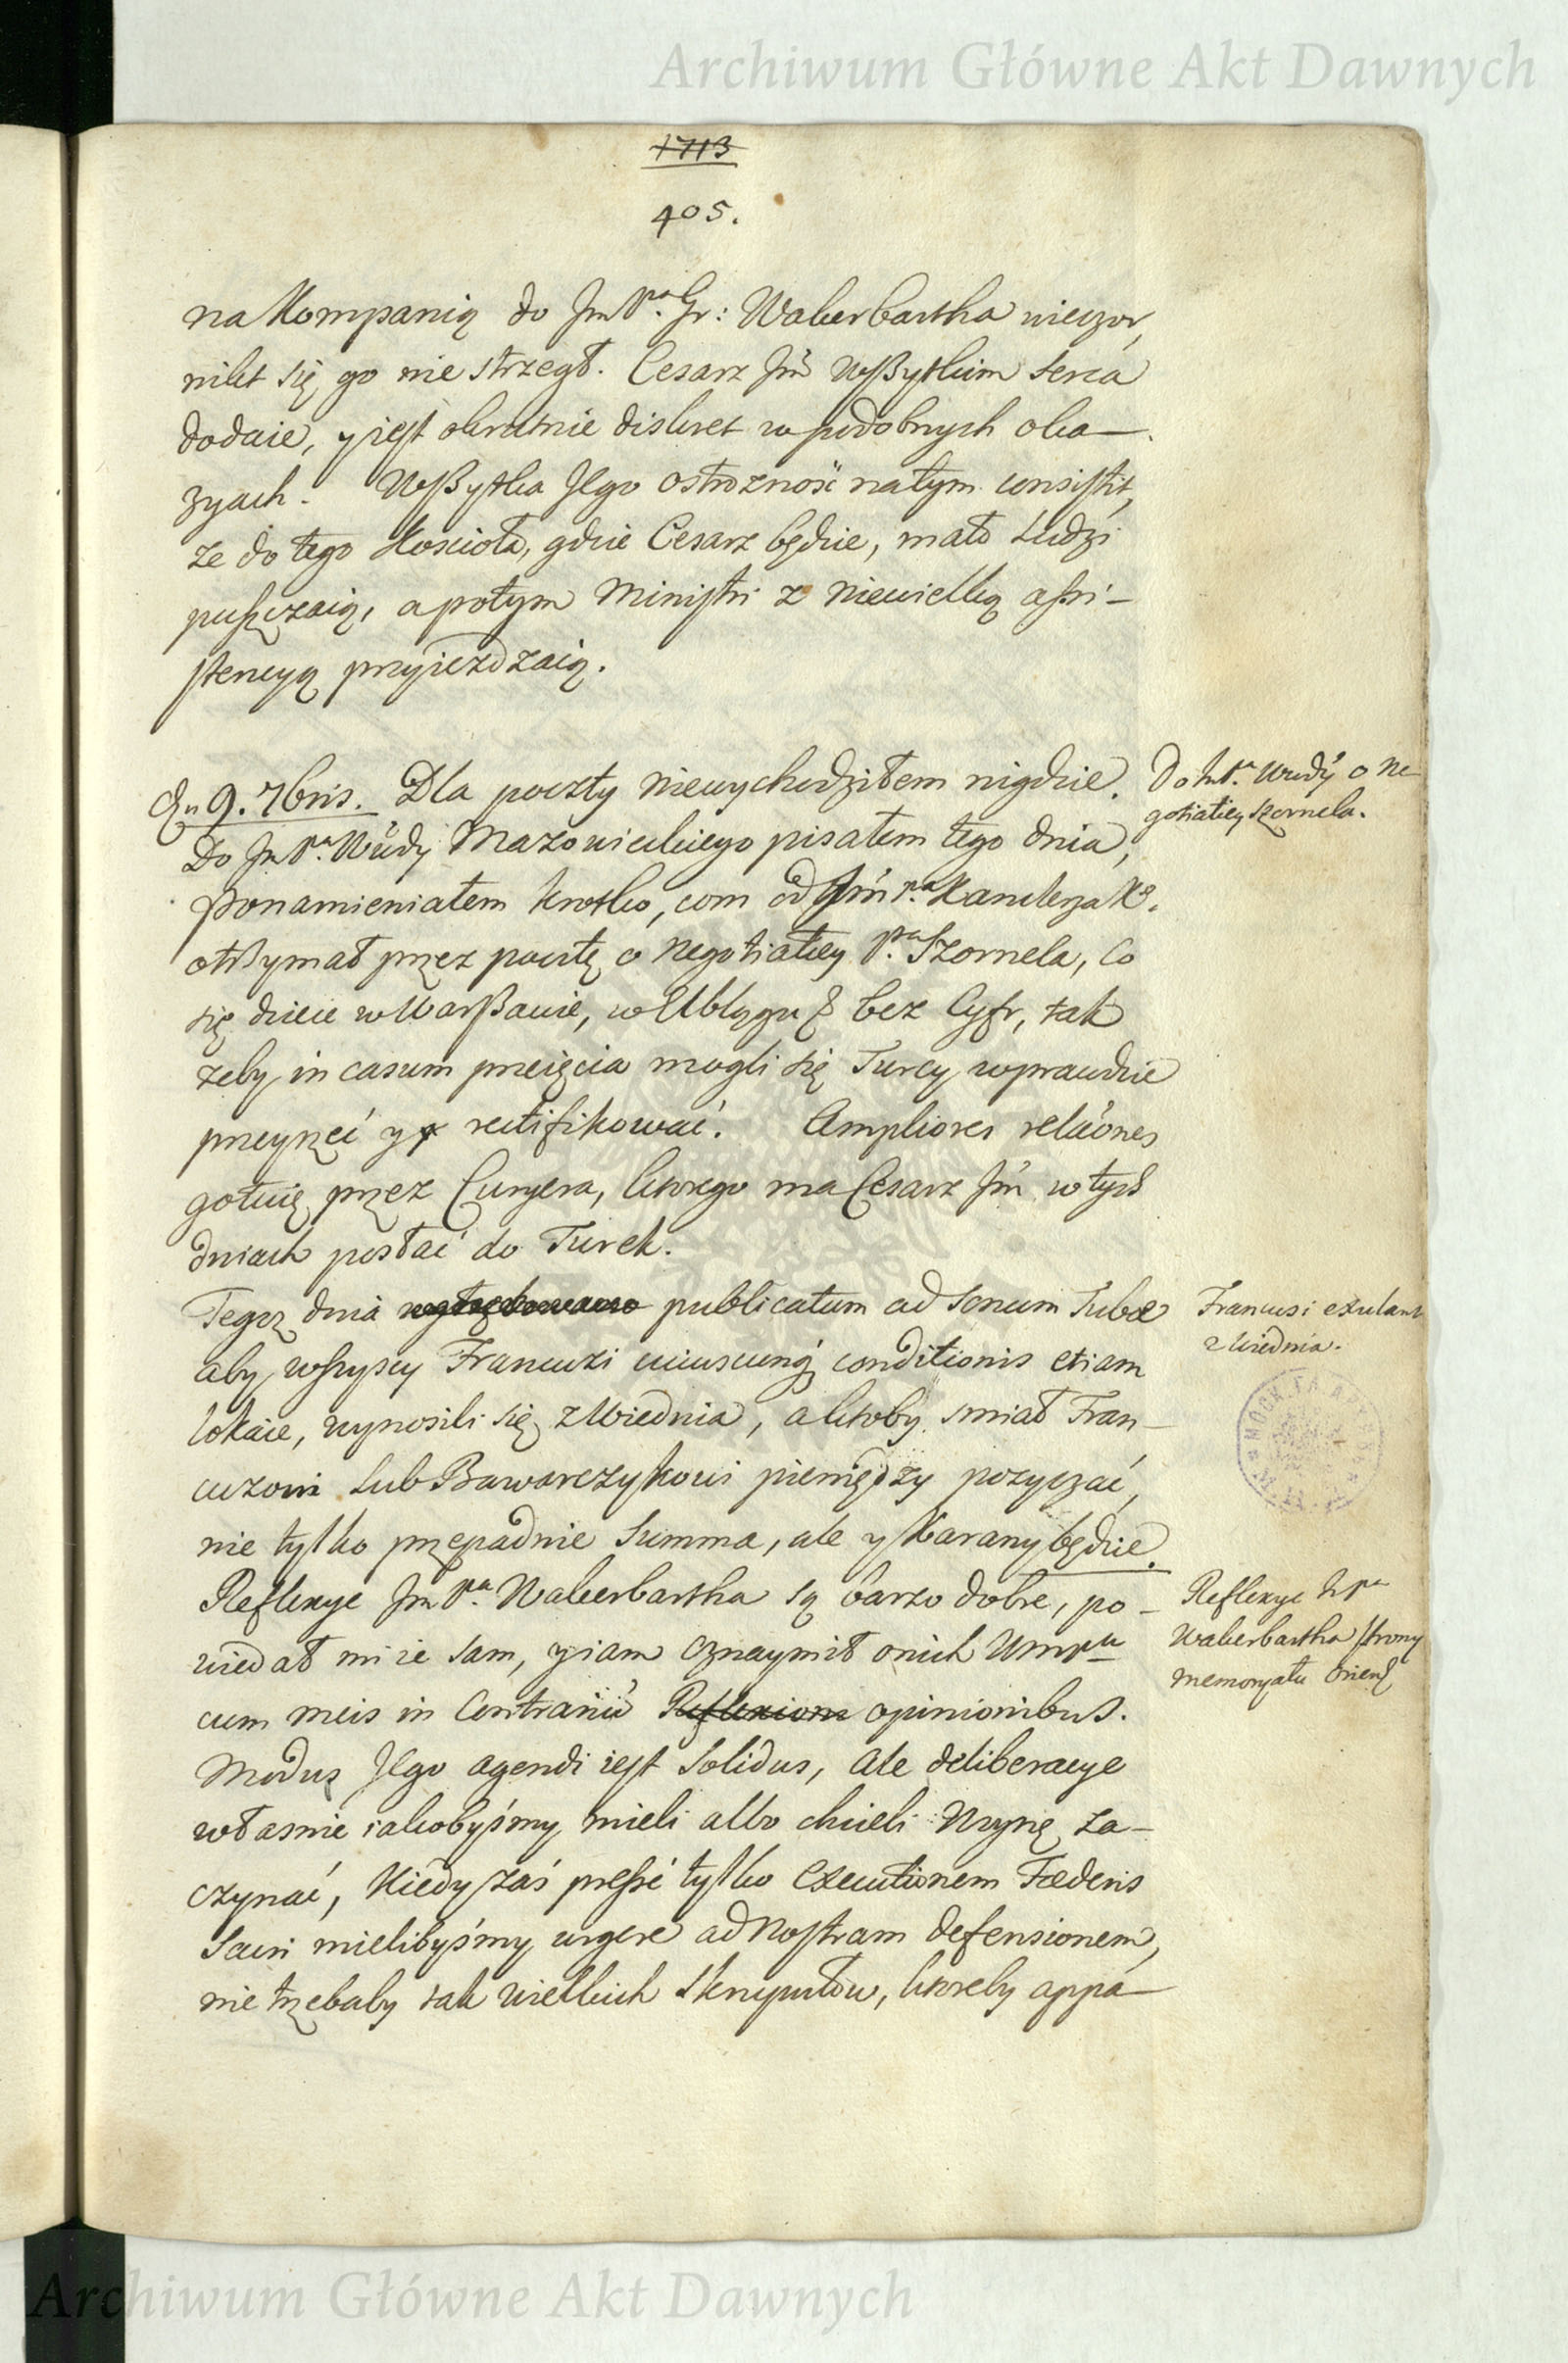 Archiwum Główne Akt Dawnych
1713
405.
na Kompanią do Jm P.ª Gr: Wakerbartha wieczor,
nikt się go nie strzegł. Cesarz Jm̃ wßytkim serca
dodaie, y iest okrutnie diskret w podobnych oka-
zyach. Wßytka Jego ostrozność natym consistit,
ze do tego Koscioła, gdzie Cesarz będzie, mało Ludzi
puszczaią, apotym Ministri z niewielką assi-
stencyą przyiezdzaią.
Dn 9. 7bris. Dla poczty niewychodziłem nigdzie.
Do Jm P.ª Wdy Mazowieckiego pisałem tego dnia,
ponamieniałem krotko, com od Jm̃ P.ª Kanclerza K°.
otrßymał przez pocztę o negotiatiey P.ª Szornela, co
się dzieie w Warßawie, w Elblągu & bez Cyfr, tak
zeby in casum przeięcia mogli się Turcy wprawdzie
przeyrzeć y rectifikować. Ampliores relãones
gotuię przez Curyera, ktorego ma Cesarz Jm̃ w tych
dniach posłać do Turek.
Tegoz dnia publicatum ad sonum Tubæ
aby wszyscy Francuzi cuiuscunq conditionis etiam
lokaie, wynosili się z Wiednia, aktoby smiał Fran-
cuzowi Lub Bawarczykowi pieniędzy pozyczać,
nie tylko przepadnie Summa, ale y Karany będzie.
Reflexye Jm P.ª Wakerbartha są barzo dobre, po-
wiedał mi ie sam, y iam oznaymił onich Wmpu
cum meis in Contrariũ Reflexione opinionibus.
Modus Jego agendi iest Solidus, ale deliberacye
własnie iakobyśmy mieli albo chcieli Woynę za-
czynać, Kiedy zaś presse tylko Executionem Fœderis
Sacri mielibyśmy urgere ad Nostram defensionem,
nie trzebaby tak wielkich skrupułow, ktoreby appa-
Do Jm P.ª Wdy o ne
gotiatiey Szornela.
Francusi exulant
z Wiednia.
Reflexye Jm Pª
Wakerbartha strony
memoryału
Archiwum Główne Akt Dawnych